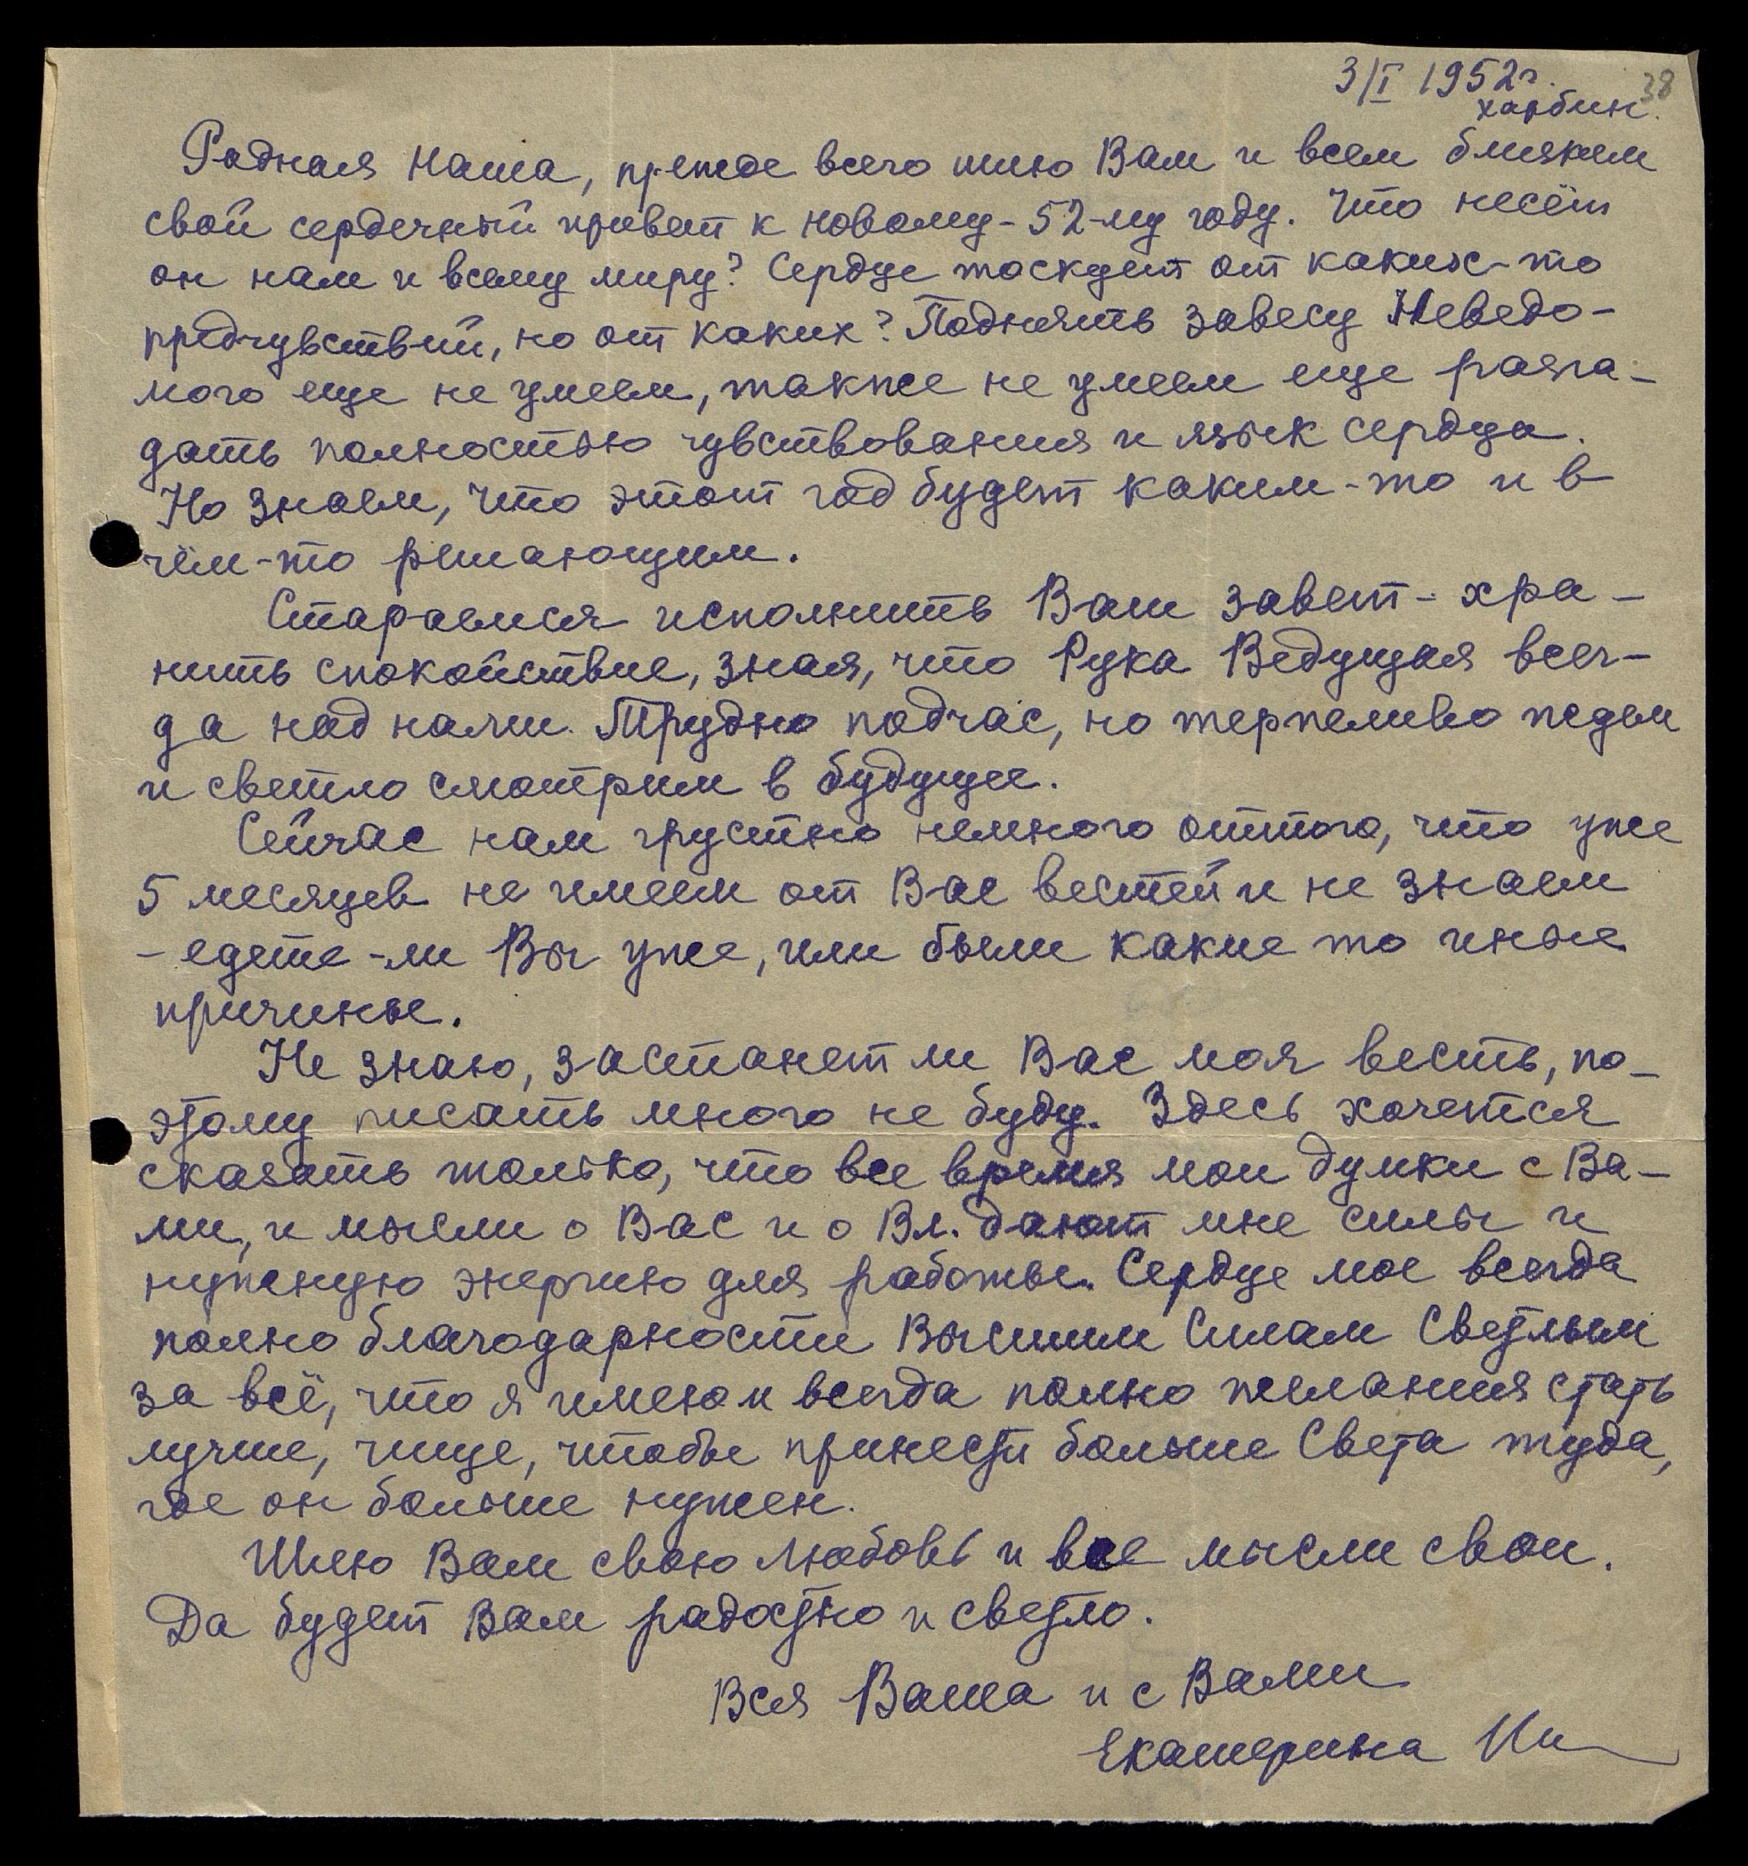 3/I 1952г.
38
Харбин.
Родная Наша, прежде всего шлю Вам и всем близким
свой сердечный привет к Новому-52-му году. Что несёт
он нам и всему миру? Сердце тоскует от каких-то
предчувствий, но от каких? Поднять завесу Неведо-
мого еще не умеем, также не умеем еще разга-
дать полностью чувствования и язык сердца.
Но знаем, что этот год будет каким-то и в
чём-то решающим.
Стараемся исполнить Ваш завет - хра-
нить спокойствие, зная, что Рука Ведущая всег-
да над нами. Трудно подчас, но терпеливо ждем
и светло смотрим в будущее.
Сейчас нам грустно немного оттого, что уже
5 месяцев не имеем от Вас вестей и не знаем
- едете-ли Вы уже, или были какие то иные
причины.
Не знаю, застанет ли Вас моя весть, по-
этому писать много не буду. Здесь хочется
сказать только, что все время мои думки с Ва-
ми, и мысли о Вас и о Вл. дают мне силы и
нужную энергию для работы. Сердце мое всегда
полно благодарности Высшим Силам Светлым
за всё, что я имею и всегда полно желания стать
лучше, чище, чтобы принести больше Света туда,
где он больше нужен.
Шлю Вам свою любовь и все мысли свои.
Да будет Вам радостно и светло.
Вся Ваша и с Вами
Екатерина